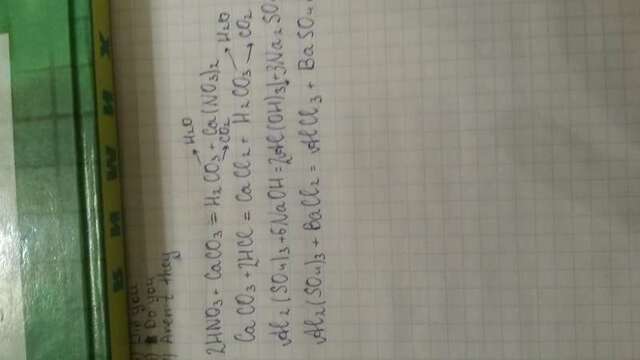 Did you
Do you
Aren't they
2HNO₃ + CaCO₃ = H₂CO₃ + Ca(NO₃)₂
H₂O
CO₂
CaCO₃ + 2HCl = CaCl₂ + H₂CO₃
H₂O
CO₂
Al₂(SO₄)₃ + 6NaOH = 2Al(OH)₃↓ + 3Na₂SO
Al₂(SO₄)₃ + BaCl₂ = AlCl₃ + BaSO₄